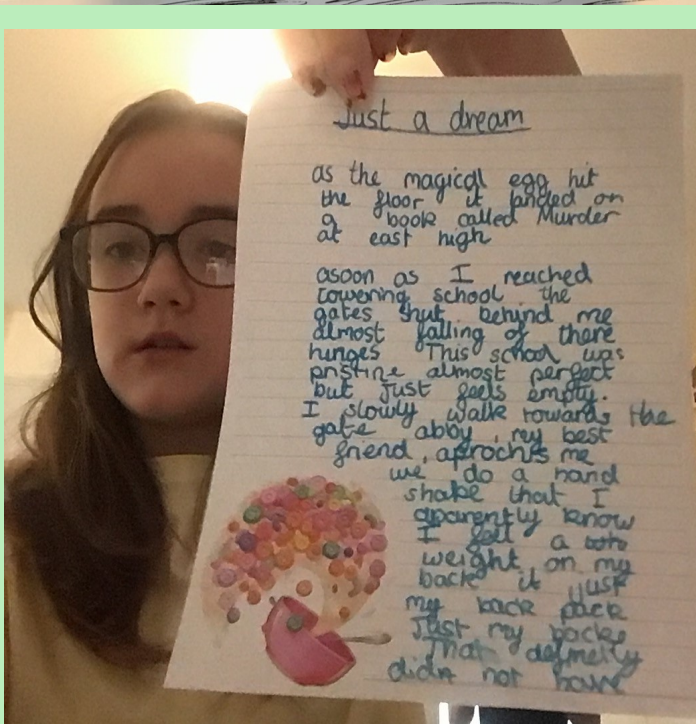 Just a dream
as the magical egg hit
the floor it landed on
a book called Murder
at east high
asoon as I reached
towering school the
gates shut behind me
almost falling of there
hinges This school was
pristine almost perfect
but just feels empty.
I slowly walk towards the
gate abby, my best
friend, aproches me
we do a hand
shake that I
aparently know
I felt a
weight on my
back it just
my back pack
Just my back
That definetly
didn not have